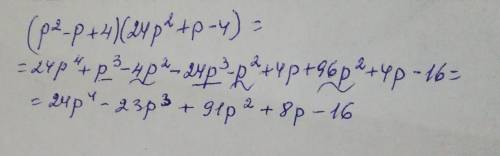 (p²-p+4)(24p²+p-4)=
=24p⁴+p³-4p²-24p³-p²+4p+96p²+4p-16=
=24p⁴-23p³+91p²+8p-16